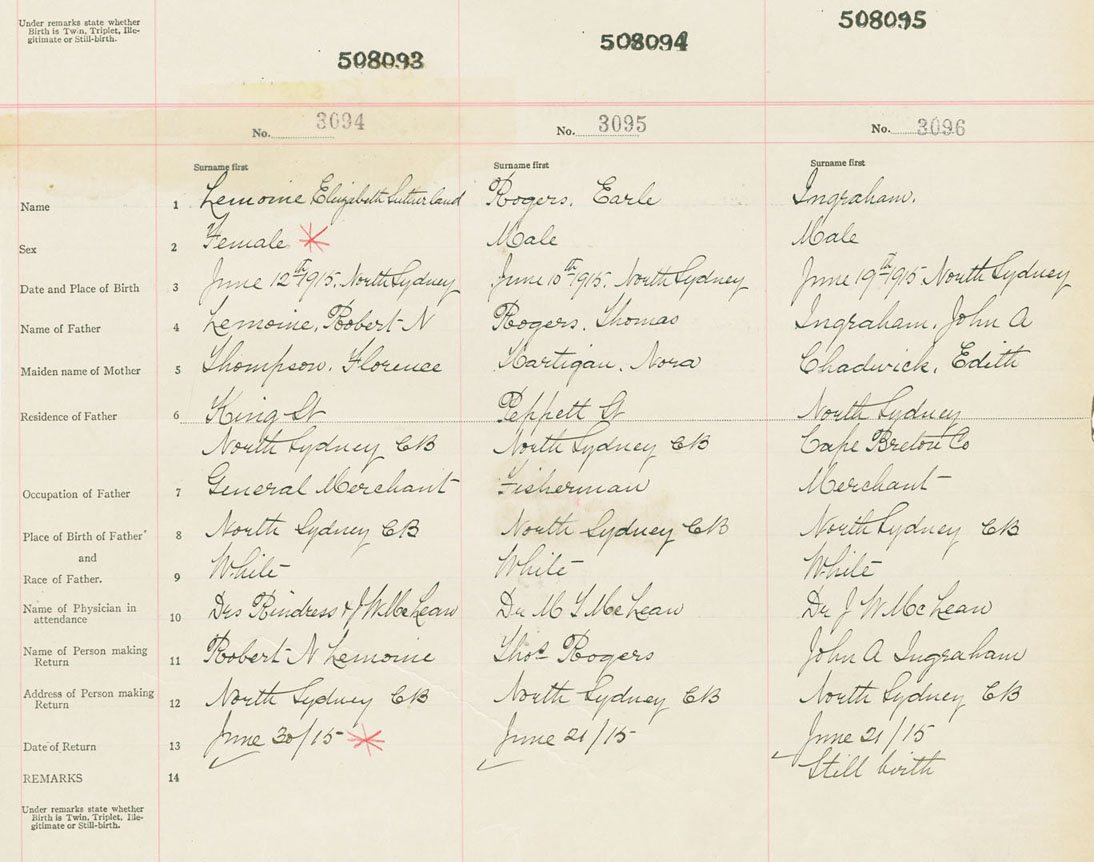 Under remarks state whether
Birth is Twin, Triplet, Ille-
gitimate or Still-birth.
508093 508094 508095
No. 3094 No. 3095 No. 3096
Surname first Surname first Surname first
Name 1 Lemoine Elizabeth Sutherland Rogers, Earle Ingraham.
Sex 2 Female * Male Male
Date and Place of Birth 3 June 12th 1915. North Sydney June 10th 1915. North Sydney June 19th 1915 North Sydney
Name of Father 4 Lemoine, Robert N Rogers, Thomas Ingraham, John A
Maiden name of Mother 5 Thompson, Florence Hartigan, Nora Chadwick, Edith
Residence of Father 6 King St Peppett St North Sydney
North Sydney CB North Sydney CB Cape Breton Co
Occupation of Father 7 General Merchant Fisherman Merchant
Place of Birth of Father 8 North Sydney CB North Sydney CB North Sydney CB
and
Race of Father. 9 White White White
Name of Physician in
attendance 10 Drs Rindress & J W McLean Dr M McLean Dr J W McLean
Name of Person making
Return 11 Robert N Lemoine Thos Rogers John A Ingraham
Address of Person making
Return 12 North Sydney CB North Sydney CB North Sydney CB
Date of Return 13 June 30/15 * June 21/15 June 21/15
REMARKS 14 Still birth
Under remarks state whether
Birth is Twin, Triplet, Ille-
gitimate or Still-birth.